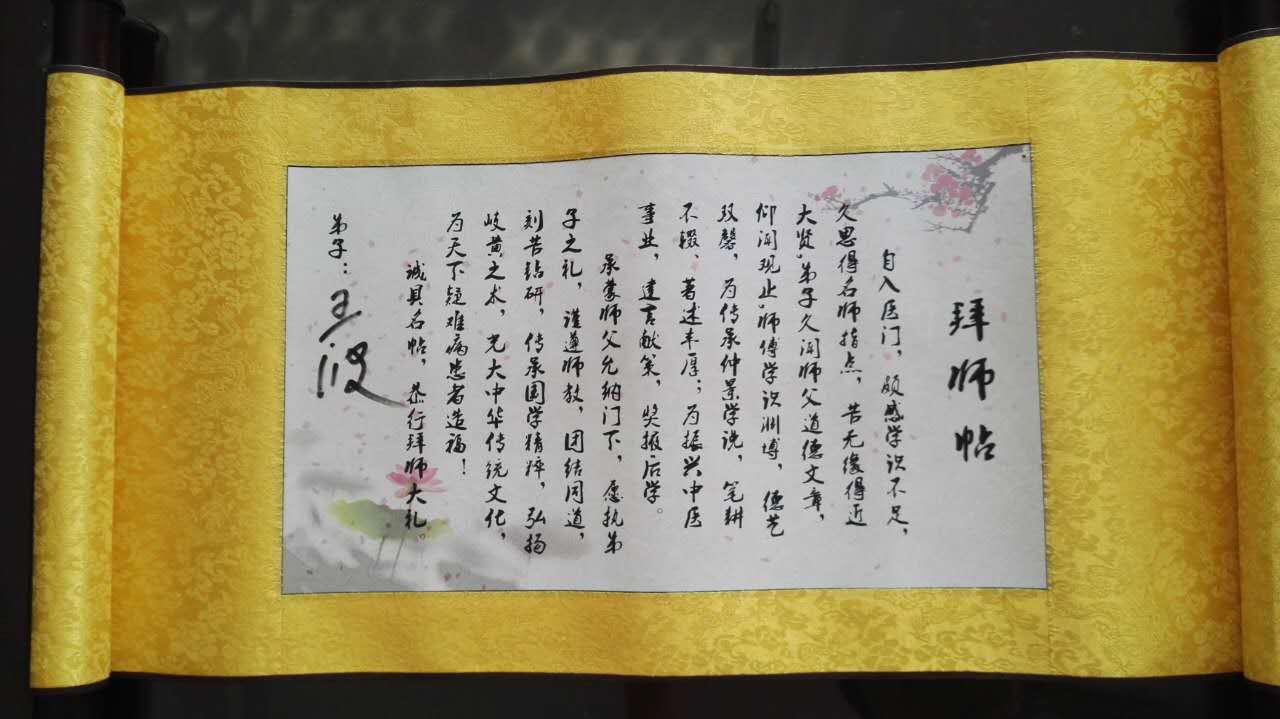 拜师帖
自入医门，颇感学识不足，
久思得名师指点，苦无缘得近
大贤。弟子久闻师父道德文章，
仰闻现止。师傅学识渊博，德艺
双馨，为传承仲景学说，笔耕
不辍、著述丰厚；为振兴中医
事业，建言献策，奖掖后学。
承蒙师父允纳门下，愿执弟
子之礼，谨遵师教，团结同道，
刻苦钻研，传承国学精粹，弘扬
岐黄之术，光大中华传统文化，
为天下疑难病患者造福！
诚具名帖，恭行拜师大礼。
弟子：王波